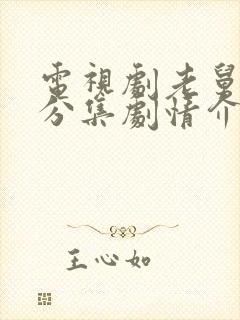 電視劇老舅
分集劇情介
王心如